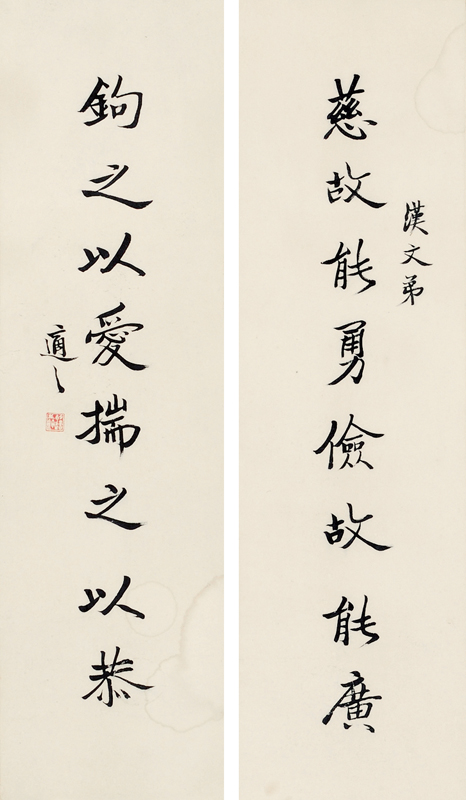 慈故能勇儉故能廣
漢文弟
鉤之以愛揣之以恭
適之